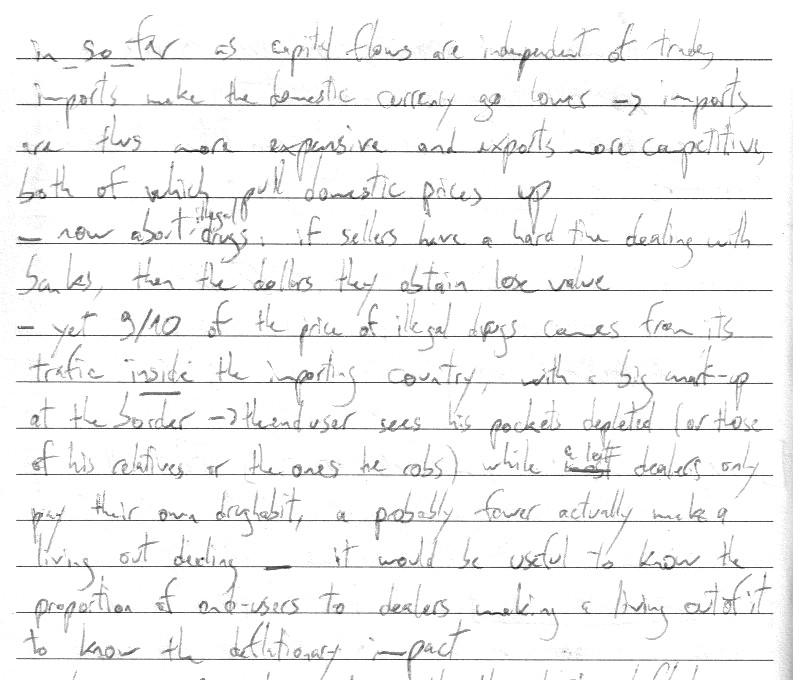 in so far as capital flows are independent of trade,
imports make the domestic currency go lower -> imports
are thus more expansive and exports more competitive,
both of which pull domestic prices up
- now about illegal drugs: if sellers have a hard time dealing with
banks, then the dollars they obtain lose value
- yet 9/10 of the price of illegal drugs comes from its
trafic inside the importing country, with a big mark-up
at the border -> the end user sees his pockets depleted (or those
of his relatives or the ones he robs) while a lot dealers only
pay their own drughabit, a probably fewer actually make a
living out dealing – it would be useful to know the
proportion of end-users to dealers making a living out of it
to know the deflationary impact